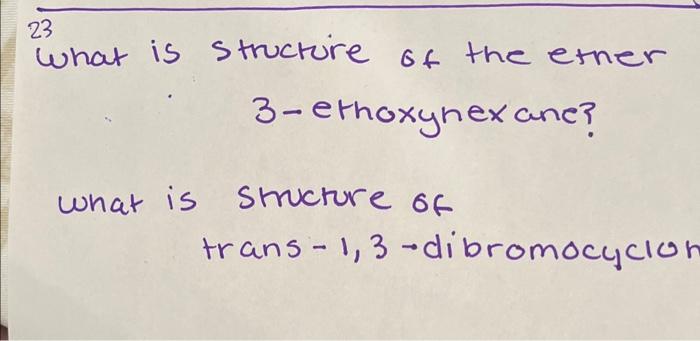 23
What is structure of the ether
3-ethoxyhexane?
What is structure of
trans-1,3-dibromocycloh